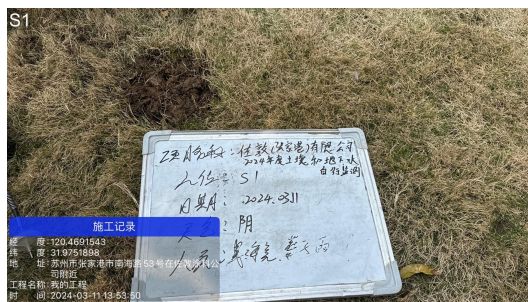 S1
项目名称:佐敦(张家港)有限公司
2024年度土壤和地下水
自行监测
点位:S1
日期:2024.0311
天气:阴
施工记录
经 度:120.4691543
纬 度:31.9751898
地 址:苏州市张家港市南海路53号在佐敦涂料公
司附近
工程名称:我的工程
时 间:2024-03-11 13:53:50